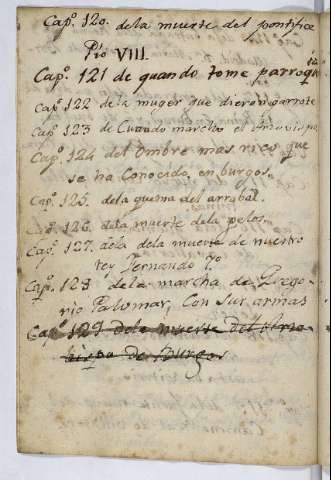 Capº. 120. de la muerte del pontifice
Pio VIII.
Capº. 121 de quando tome parroquia
Capº. 122 de la muger que dieron garrote
Capº. 123 de Cuando marcho el Arzovispo
Capº. 124 del Ombre mas rico que
se ha Conocido, en burgos.
Capº. 125. de la quema del arrabal.
Capº. 126. de la muerte de la pelos.
Capº. 127. de la de la muerte de nuestro
rey Fernando 7º.
Capº. 128. de la marcha de Grego-
rio Palomar, Con sus armas
Capº. 129 de la muerte del Arzo-
bispo de Burgos